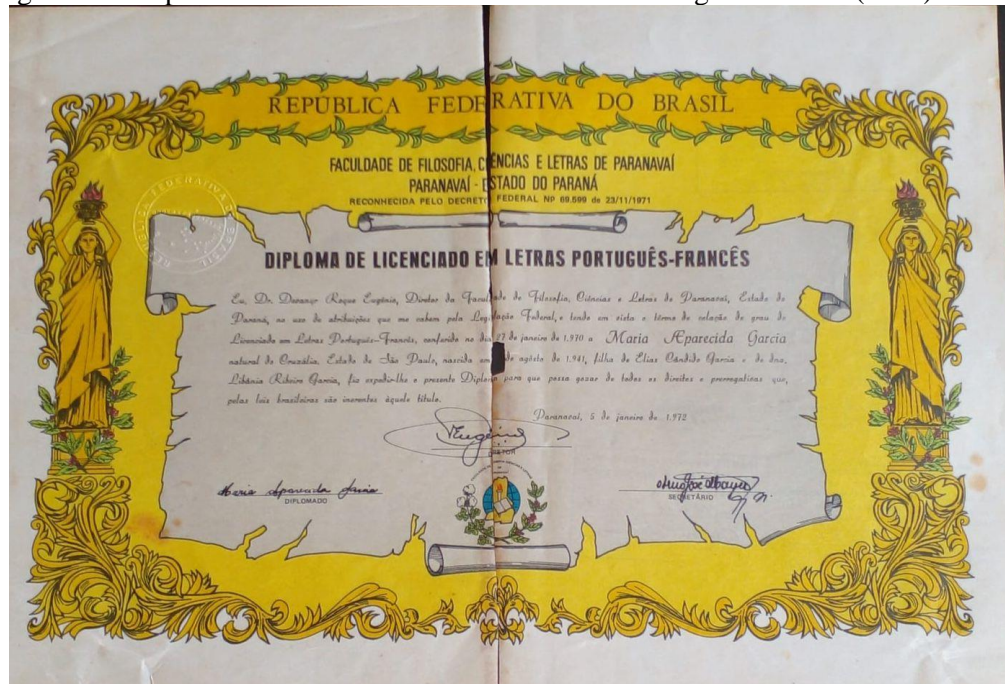 REPÚBLICA FEDERATIVA DO BRASIL
FACULDADE DE FILOSOFIA, CIÊNCIAS E LETRAS DE PARANAVAÍ
PARANAVAÍ - ESTADO DO PARANÁ
RECONHECIDA PELO DECRETO FEDERAL Nº 69.599 de 23/11/1971
DIPLOMA DE LICENCIADO EM LETRAS PORTUGUÊS-FRANCÊS
Eu, Dr. Roque Eugênio, Diretor da Faculdade de Filosofia, Ciências e Letras de Paranavaí, Estado do
Paraná, no uso de atribuições que me cabem pela Legislação Federal, e tendo em vista o têrmo de colação de grau de
Licenciado em Letras Português-Francês, conferido no dia 27 de janeiro de 1.970 a Maria Aparecida Garcia
natural de Cruzália, Estado de São Paulo, nascida em de agôsto de 1.941, filha de Elias Cândido Garcia e de dna.
Libânia Ribeiro Garcia, fiz expedir-lhe o presente Diploma para que possa gozar de todos os direitos e prerrogativas que,
pelas leis brasileiras são inerentes àquele título.
Paranavaí, 5 de janeiro de 1.972
DIRETOR
Maria Aparecida Garcia
DIPLOMADO
SECRETÁRIO